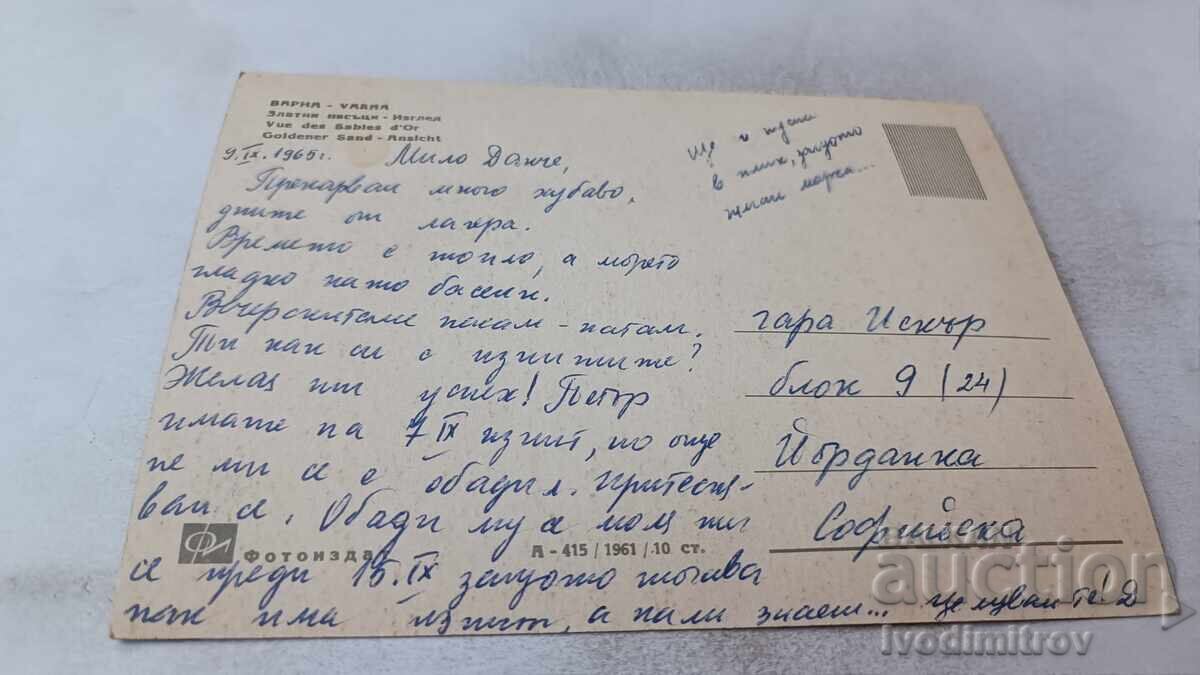 ВАРНА - VARNA
Златни пясъци - Изглед
Vue des Sables d'Or
Goldener Sand - Ansicht
9.IX.1965г. Мило Данче,
Прекарвам много хубаво,
дните от лагера.
Времето е топло, а морето
гладко като басейн.
Вечерите насам - натам.
Ти как си с изпитите?
Желая ти успех! Петър
имаше на 7 IX изпит, но още
не ми се е обадил. Притесня-
вам се. Обади му се моля ти
се преди 15.IX защото тогава
пак има изпит, а нали знаеш... целувам те! Д
Ще я пусна
в плик, защото
нямам марка...
гара Искър
блок 9 (24)
Йорданка
Софийска
Фотоиздат
А - 415 / 1961 / 10 ст.
auction
ivodimitrov